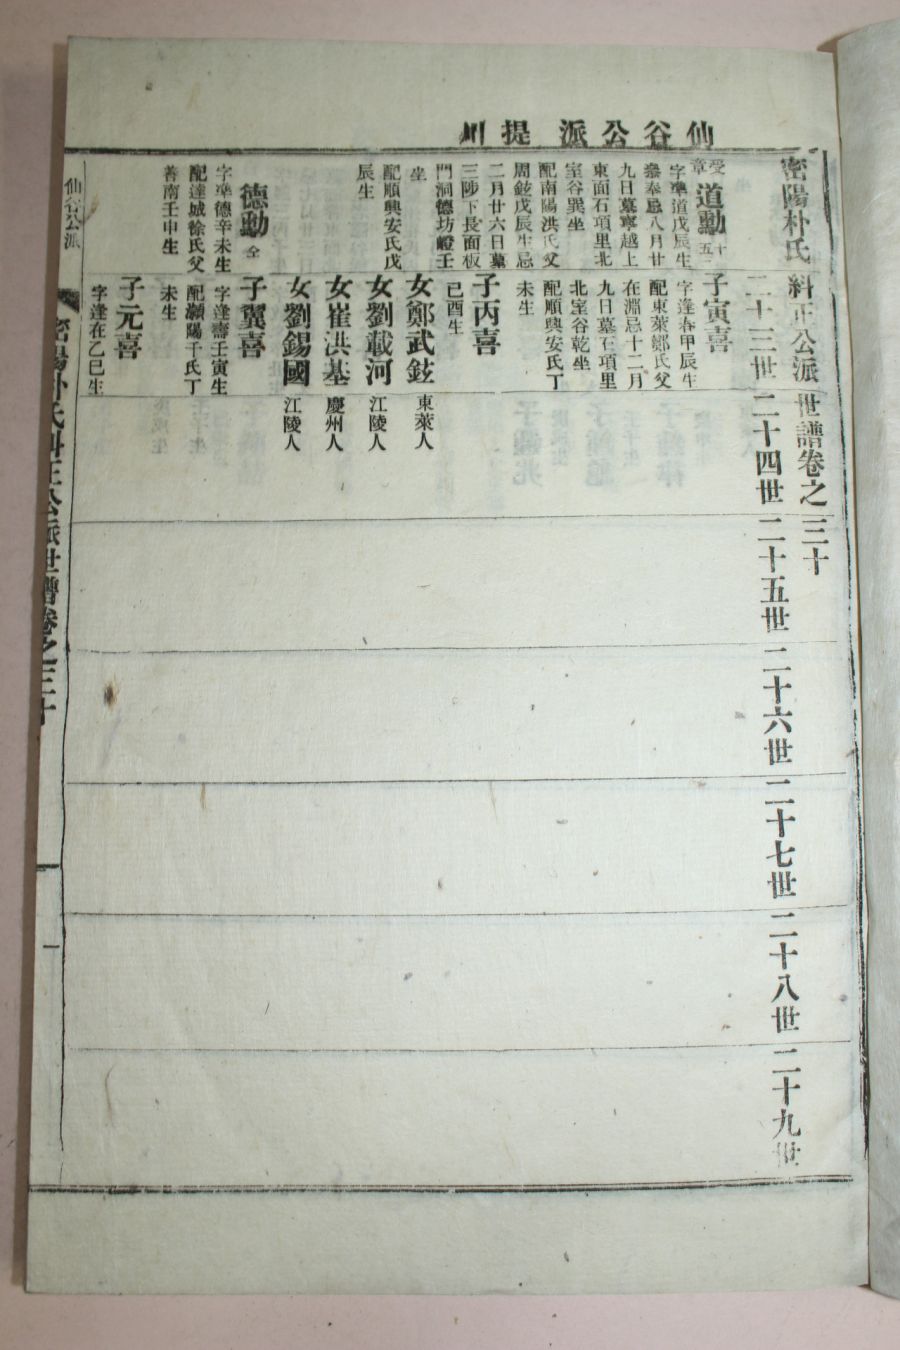 仙谷公派 提川
密陽朴氏糾正公派世譜卷之三十
二十三世 二十四世 二十五世 二十六世 二十七世 二十八世 二十九世
受章
道勳
字準道戊辰生
參奉忌八月廿
九日墓寧越上
東面石項里北
室谷巽坐
配南陽洪氏父
周鉉戊辰生忌
二月廿六日墓
三陟下長面板
門洞德坊嶝壬
坐
配順興安氏戊
辰生
子寅喜
字逢春甲辰生
配東萊鄭氏父
在淵忌十二月
九日墓石項里
北室谷乾坐
配順興安氏丁
未生
子丙喜
己酉生
女鄭武鉉 東萊人
女劉載河 江陵人
女崔洪基 慶州人
女劉錫國 江陵人
德勳 仝
字準德辛未生
配達城徐氏父
善南壬申生
子翼喜
字逢壽壬寅生
配潁陽千氏丁
未生
子元喜
字逢在乙巳生
仙谷公派
密陽朴氏糾正公派世譜卷之三十
一